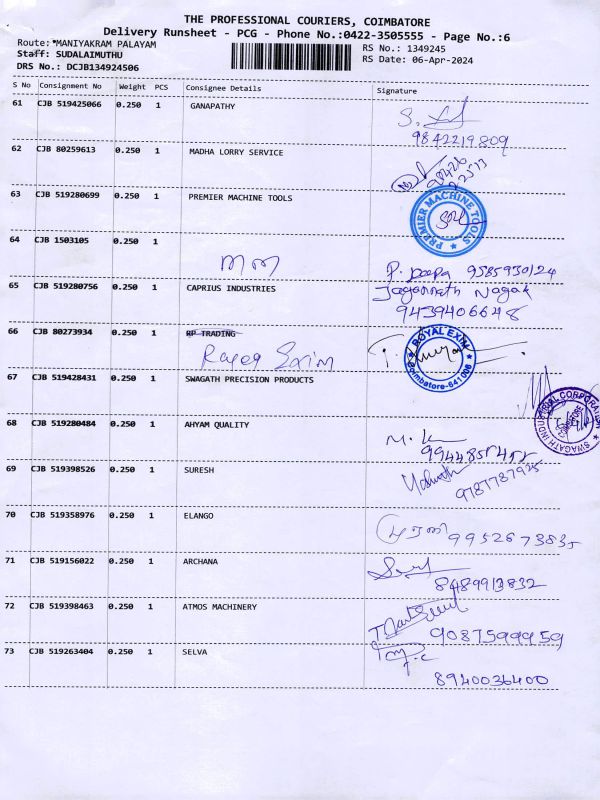 THE PROFESSIONAL COURIERS, COIMBATORE
Delivery Runsheet - PCG - Phone No.:0422-3505555 - Page No.:6
Route: *MANIYAKRAM PALAYAM
RS No.: 1349245
Staff: SUDALAIMUTHU
RS Date: 06-Apr-2024
DRS No.: DCJB134924506
S No Consignment No Weight PCS Consignee Details Signature
61 CJB 519425066 0.250 1 GANAPATHY
9842219809
62 CJB 80259613 0.250 1 MADHA LORRY SERVICE
63 CJB 519280699 0.250 1 PREMIER MACHINE TOOLS
PREMIER MACHINE TOOLS
64 CJB 1503105 0.250 1
P. Deepa 9585930124
65 CJB 519280756 0.250 1 CAPRIUS INDUSTRIES Jagannath Nayak
9439406648
66 CJB 80273934 0.250 1 RP TRADING
Exim
ROYAL EXIM
Coimbatore-641006
67 CJB 519428431 0.250 1 SWAGATH PRECISION PRODUCTS
SWAGATH INDUSTRIAL CORPORATION
COIMBATORE
68 CJB 519280484 0.250 1 AHYAM QUALITY
69 CJB 519398526 0.250 1 SURESH
9787787925
70 CJB 519358976 0.250 1 ELANGO
9952673835
71 CJB 519156022 0.250 1 ARCHANA
8489913832
72 CJB 519398463 0.250 1 ATMOS MACHINERY
9087599959
73 CJB 519263404 0.250 1 SELVA
8940036400